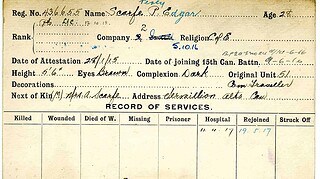 Percy
Reg. No. 436655 Name Scarfe P. Edgar Age 28
Rank Company 2 Religion C of E
5.10.16
Date of Attestation 28/1/15 Date of joining 15th Can. Battn. 9-6-16
Height 5'6" Eyes Brown Complexion Dark Original Unit 51
Decorations Com Traveller
Next of Kin (M) Mrs. A. Scarfe Address Vermillion Alta Can
RECORD OF SERVICES.
Killed Wounded Died of W. Missing Prisoner Hospital Rejoined Struck Off
11.4.17 19.5.17